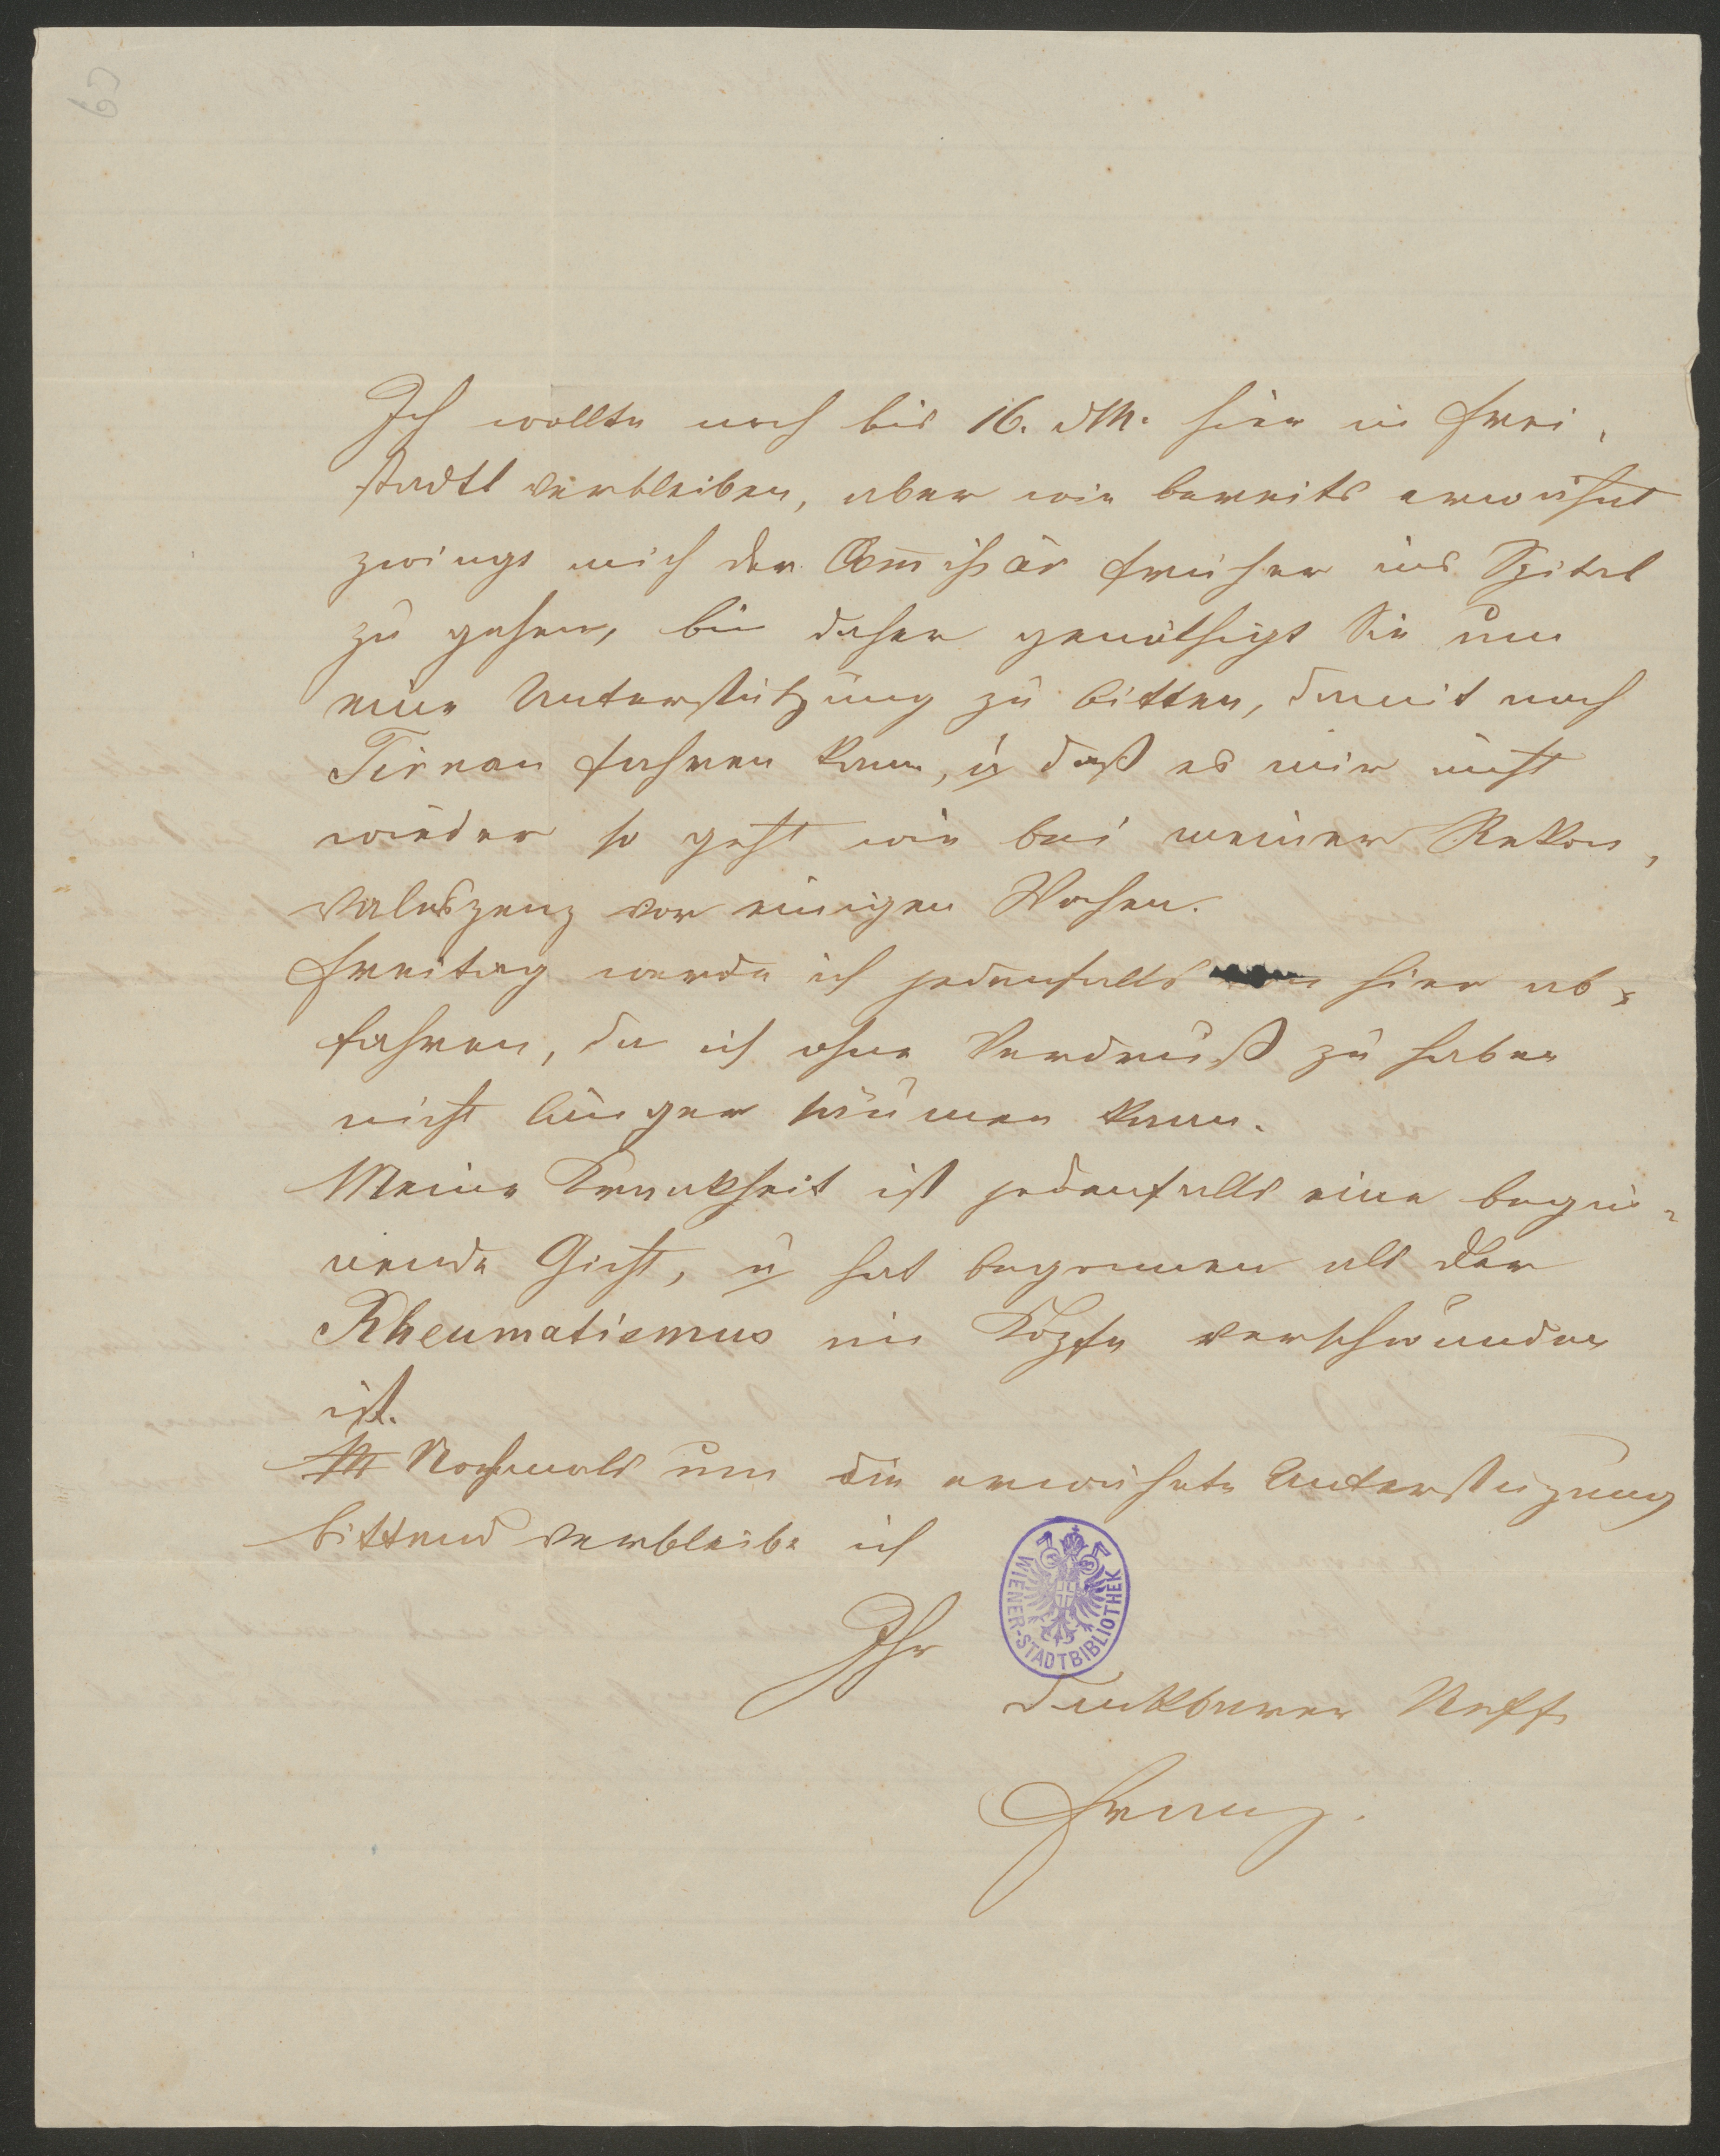 63
Ich wollte noch bis 16. dM. hier in Frei,
stadtl verbleiben, aber wie bereits erwähnt
zwingt mich der Com̄issär früher ins Spital
zu gehen, bin daher genöthigt Sie um
eine Unterstützung zu bitten, damit nach
Tirnau fahren kann, u daß es mir nicht
wieder so geht wie bei meiner Rekon,
valeszenz vor einigen Wochen.
Freitag werde ich jedenfalls von hier ab,
fahren, da ich ohne Verdruß zu haben
nicht länger säumen kann.
Meine Krankheit ist jedenfalls eine begin,
nende Gicht, u hat begonnen als der
Rheumatismus im Kopfe verschwunden
ist.
Nochmals um die erwähnte Unterstüzung
bittend verbleibe ich
Ihr
WIENER-STADTBIBLIOTHEK
dankbarer Neffe
Franz.